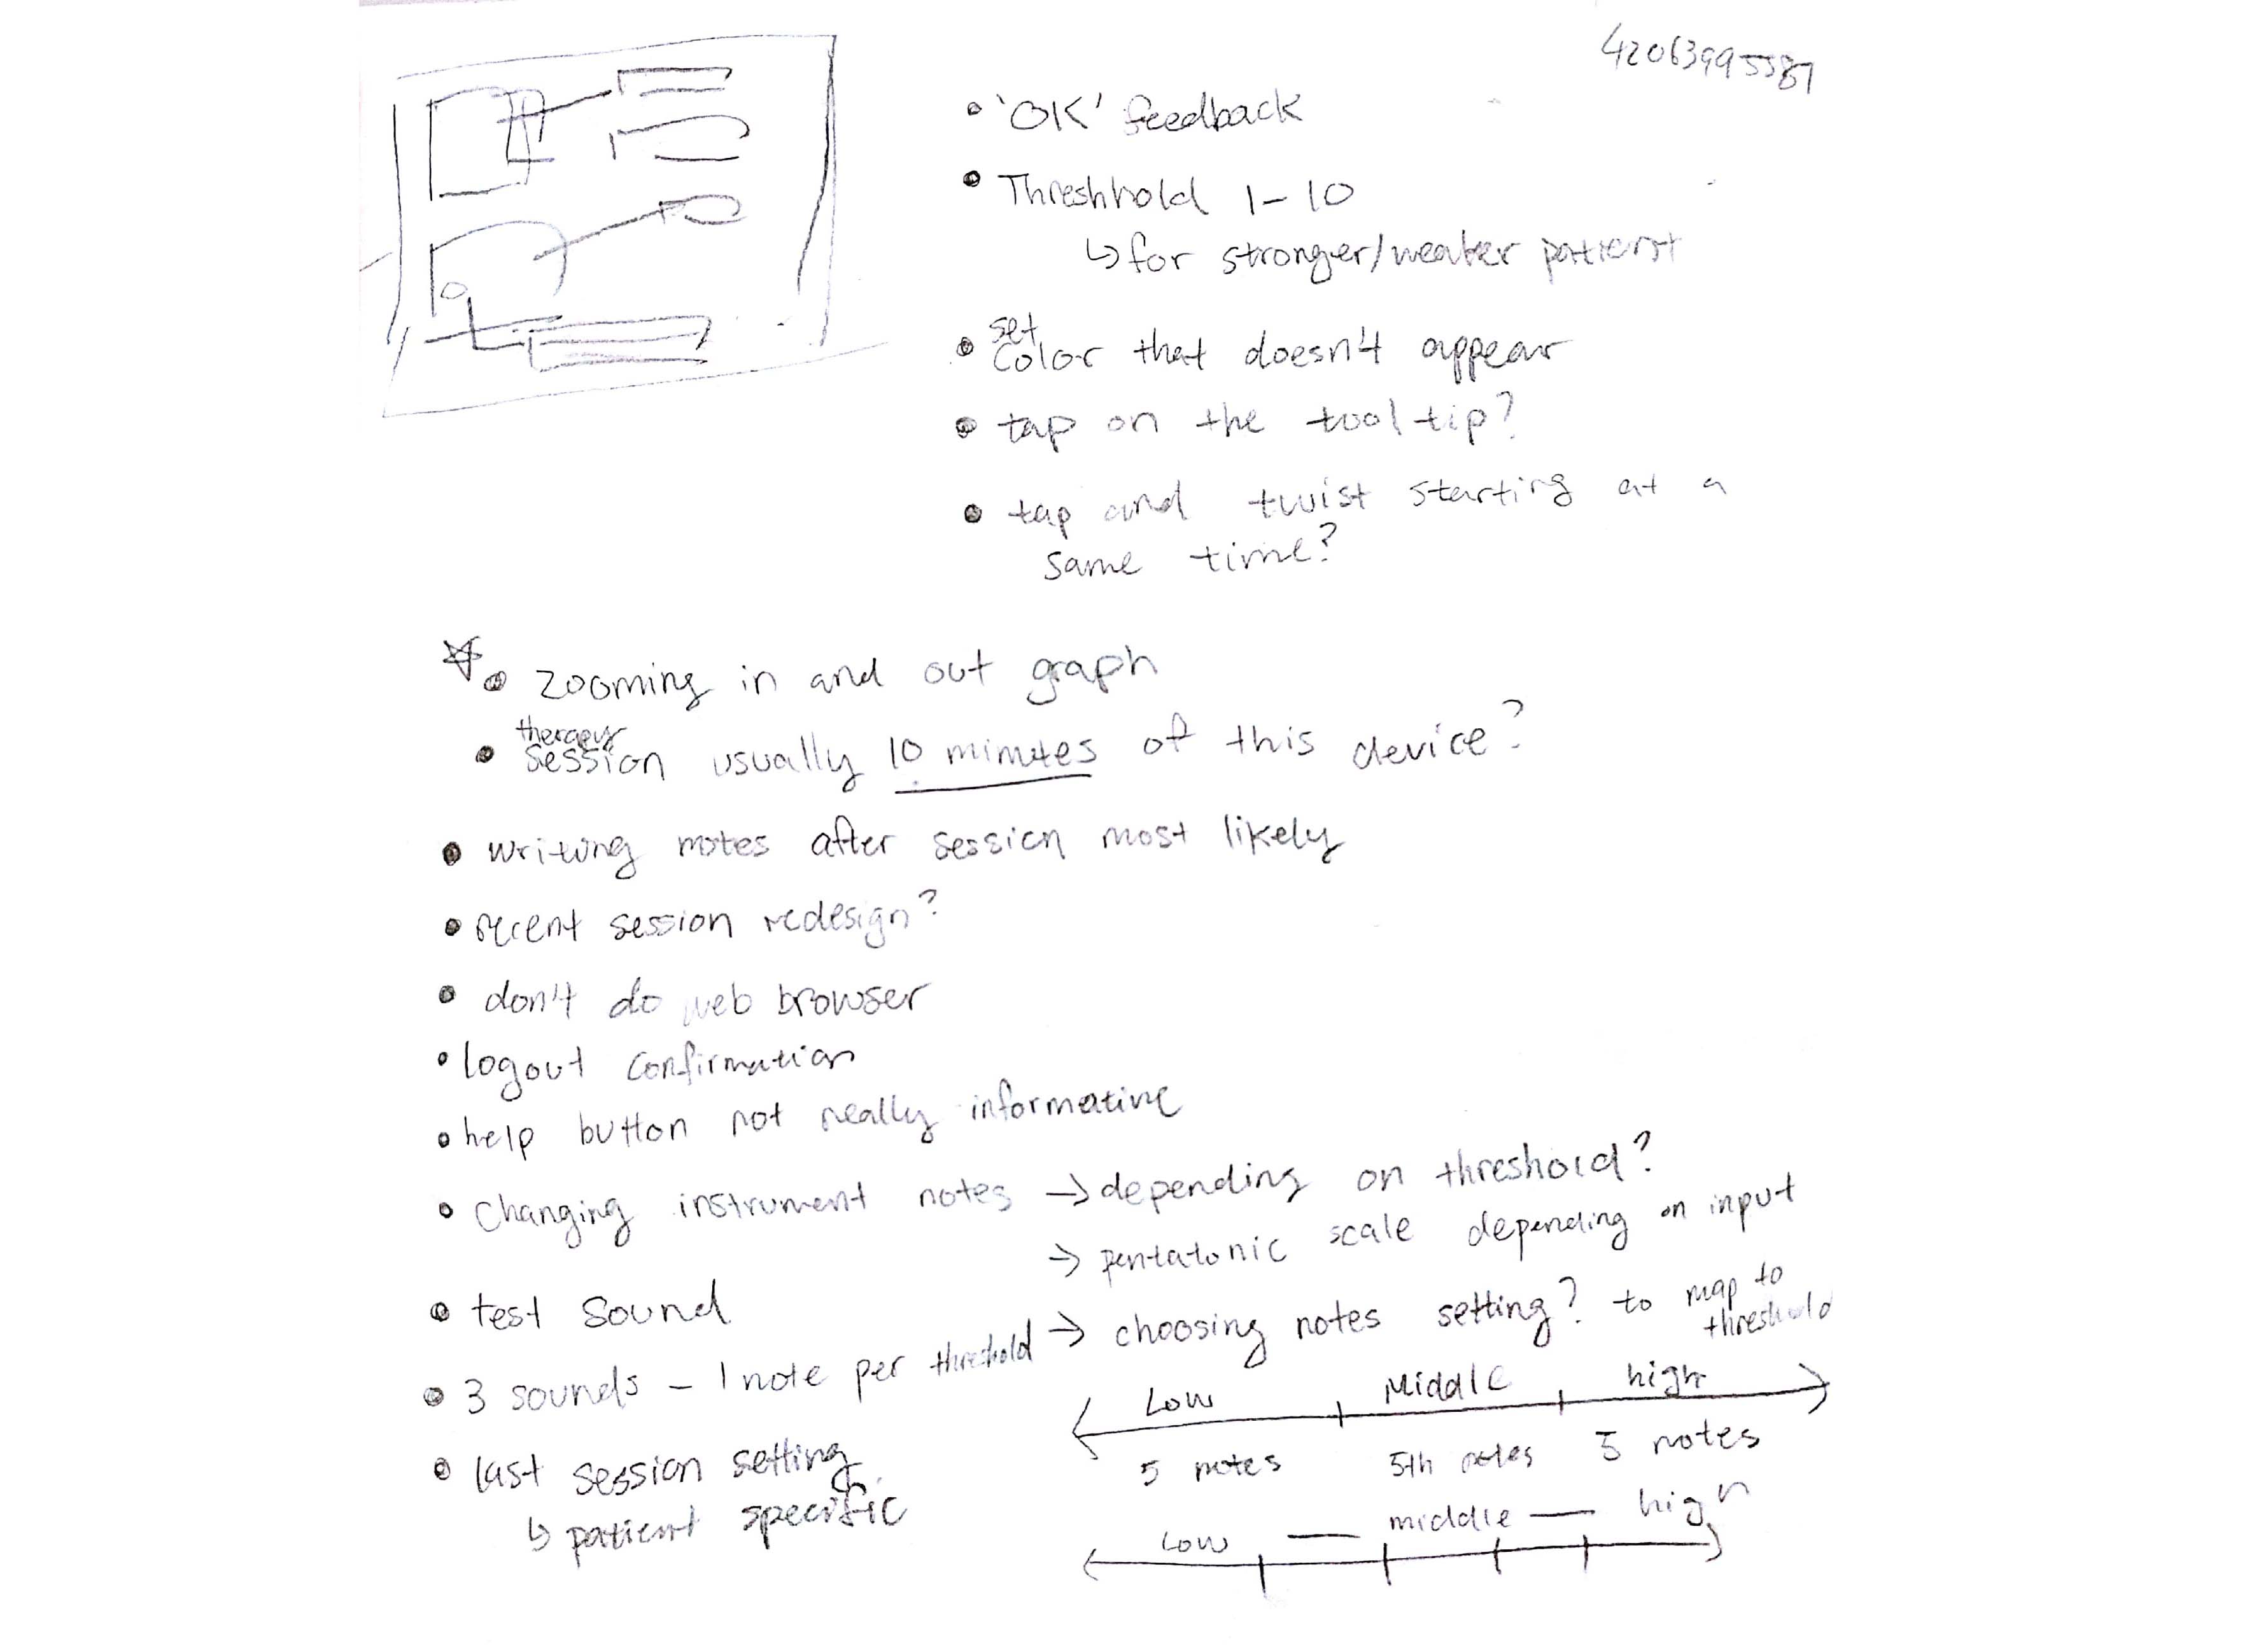 42063995587
• 'OK' feedback
• Threshhold 1-10
↳ for stronger/weaker patient
set
• color that doesn't appear
• tap on the tool tip?
• tap and twist starting at a
same time?
☆ • zooming in and out graph
therapy
• session usually 10 minutes of this device?
• writing notes after session most likely
• recent session redesign?
• don't do web browser
• logout confirmation
• help button not really informative
• changing instrument notes → depending on threshold?
→ pentatonic scale depending on input
• test sound
→ choosing notes setting? to map to
threshold
• 3 sounds - 1 note per threshold
Low Middle high
5 notes 5th notes 5 notes
• last session setting
↳ patient specific
Low — middle — high